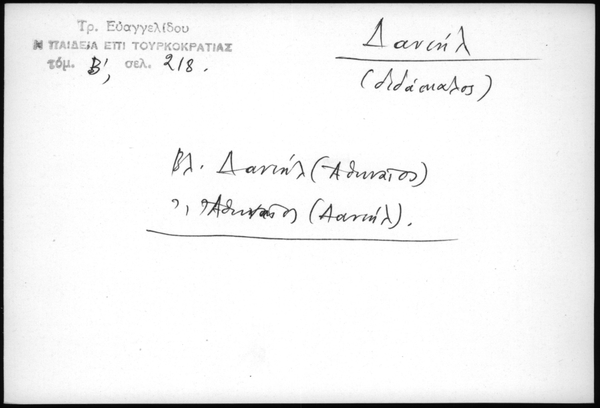 Τρ. Εὐαγγελίδου
Η ΠΑΙΔΕΙΑ ΕΠΙ ΤΟΥΡΚΟΚΡΑΤΙΑΣ
τόμ. Β', σελ. 218.
Δανιήλ
(διδάσκαλος)
Βλ. Δανιήλ (Ἀθηναῖος)
", Ἀθηναῖος (Δανιήλ).